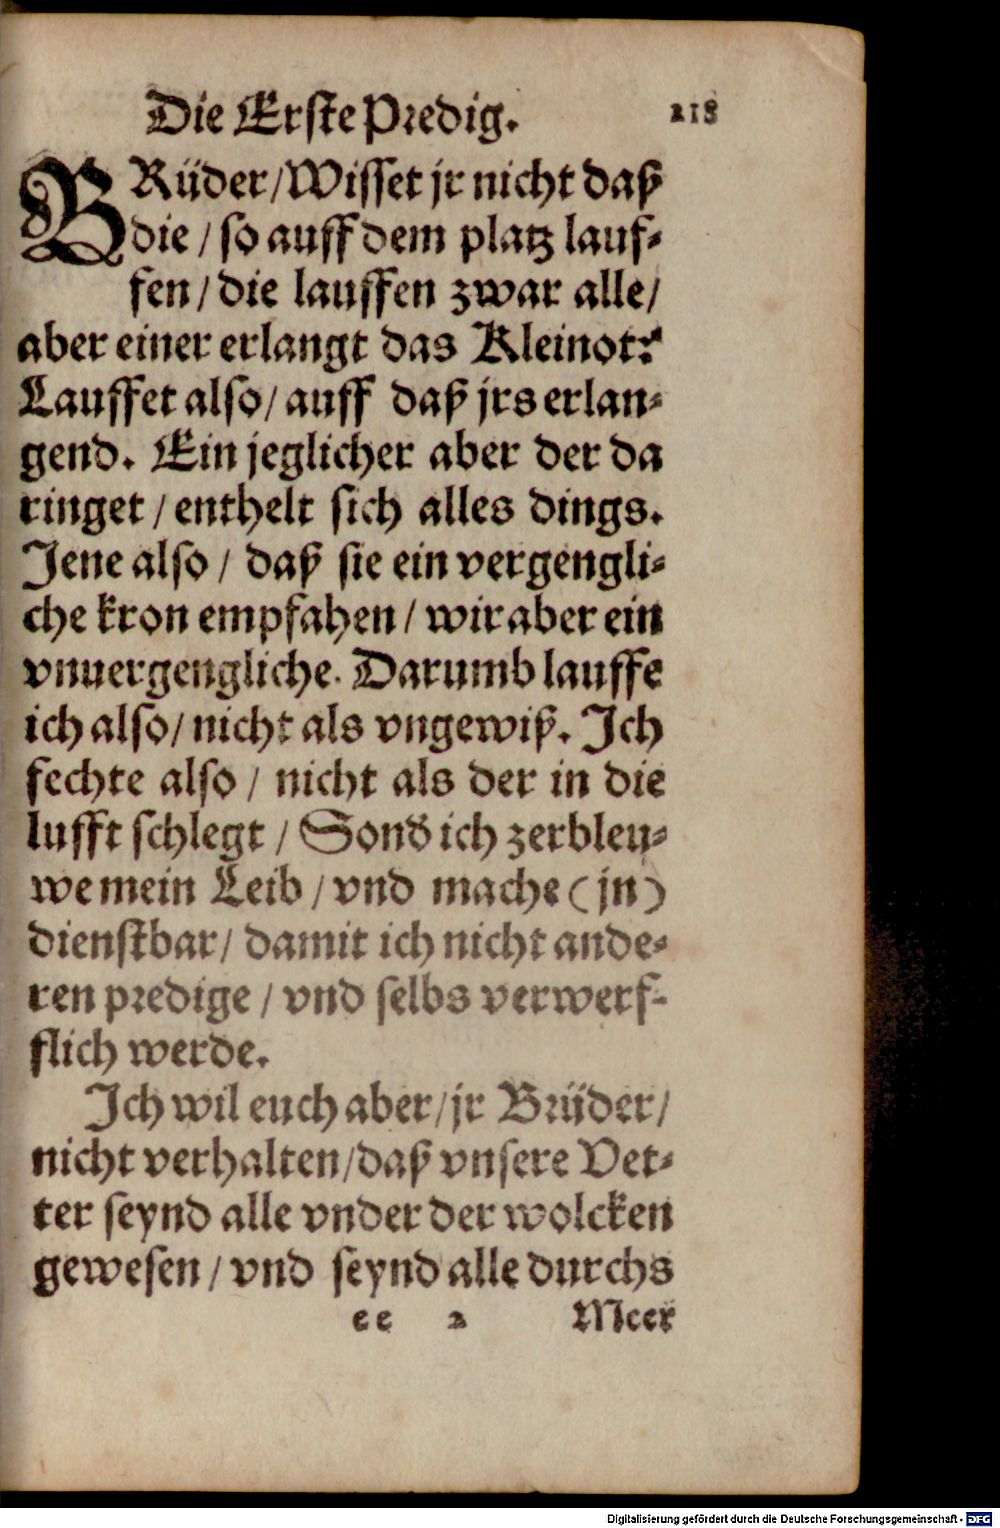 Die Erste Predig. 218
BRüder/Wisset jr nicht daß
die/so auff dem platz lauf-
fen/die lauffen zwar alle/
aber einer erlangt das Kleinot?
Lauffet also/auff daß jrs erlan-
gend. Ein jeglicher aber der da
ringet/enthelt sich alles dings.
Jene also/daß sie ein vergengli-
che kron empfahen/wir aber ein
vnuergengliche. Darumb lauffe
ich also/nicht als vngewiß. Ich
fechte also/nicht als der in die
lufft schlegt/Sond ich zerbleu-
we mein Leib/vnd mache (jn)
dienstbar/damit ich nicht ande-
ren predige/vnd selbs verwerf-
flich werde.
Ich wil euch aber/jr Brüder/
nicht verhalten/daß vnsere Vet-
ter seynd alle vnder der wolcken
gewesen/vnd seynd alle durchs
ee 2 Meer
Digitalisierung gefördert durch die Deutsche Forschungsgemeinschaft - DFG